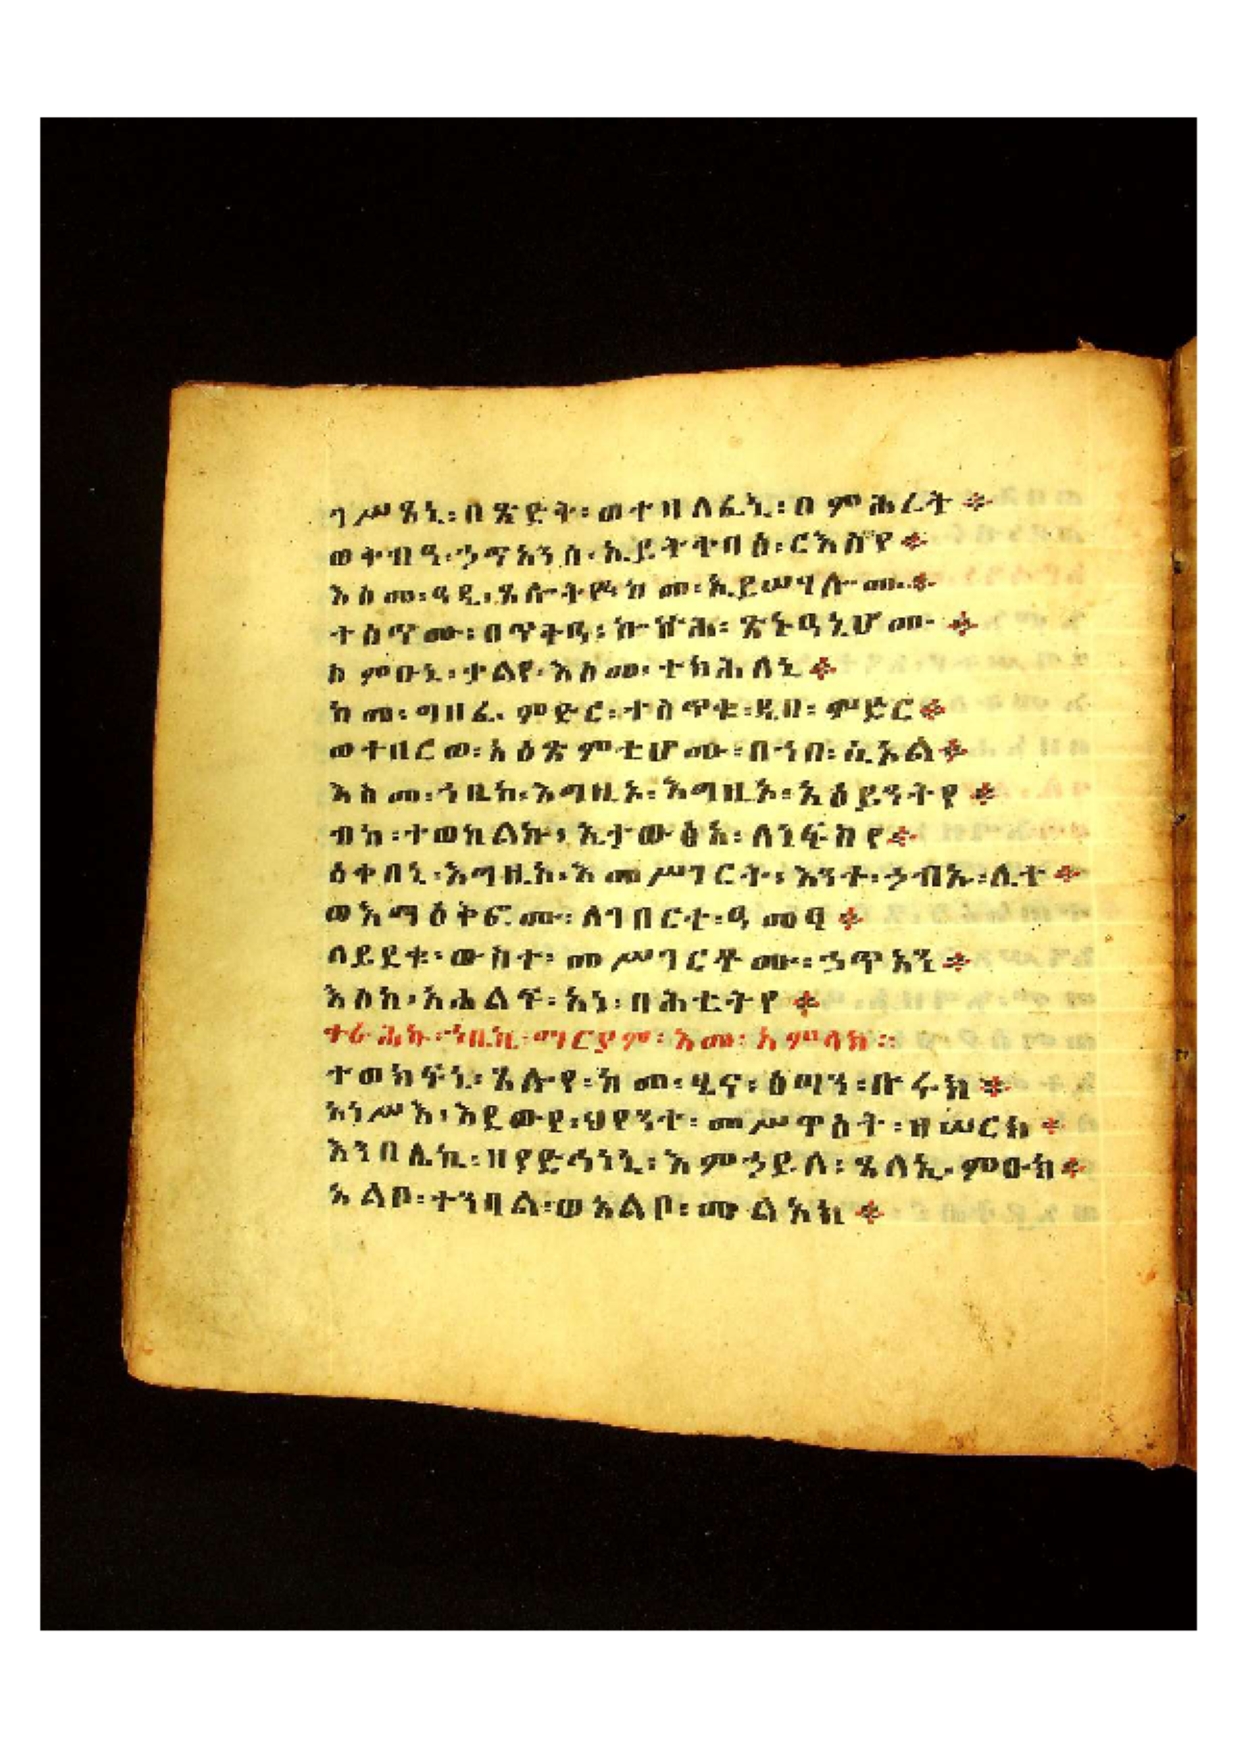 ገሥጸኒ፡በጽድቅ፡ወተዛለፈኒ፡በምሕረት፨
ወቅብዓ፡ኃጥአንሰ፡ኢይትቀባዕ፡ርእስየ፨
እስመ፡ዓዲ፡ጸሎትየ፡ከመ፡ኢይሠሃሎሙ፨
ተሰጥሙ፡በጥቃ፡ኰኵሕ፡ጽኑዓኒሆሙ፨
ስምዑኒ፡ቃልየ፡እስመ፡ተክህለኒ፨
ከመ፡ግዘፈ፡ምድር፡ተሰጥቁ፡ዲበ፡ምድር፨
ወተዘርወ፡አዕጽምቲሆሙ፡በኀበ፡ሲኦል፨
እስመ፡ኀቤከ፡እግዚኦ፡እግዚኦ፡አዕይንትየ፨
ብከ፡ተወከልኩ፡ኢታውፅአ፡ለነፍስየ፨
ዕቀበኒ፡እግዚኦ፡እመሥገርት፡እንተ፡ኃብኡ፡ሊተ፨
ወእማዕቅፎሙ፡ለገበርተ፡ዓመፃ፨
ለይደቁ፡ውስተ፡መሥገርቶሙ፡ኃጥአን፨
እስከ፡አሐልፍ፡አነ፡በሕቲትየ፨
ተፈሐኩ፡ኀቤኪ፡ማርያም፡እመ፡አምላክ።
ተወከፍኒ፡ጸሎየ፡ከመ፡ሂና፡ዕጣን፡ቡሩክ፨
አነሥእ፡እደውየ፡ህየንተ፡መሥዋዕት፡ዘሠርክ፨
እንበሌኪ፡ዘየድኅነኒ፡እምኃይለ፡ጸላኢ፡ምዑክ፨
አልቦ፡ተንባል፡ወአልቦ፡መልአክ፨